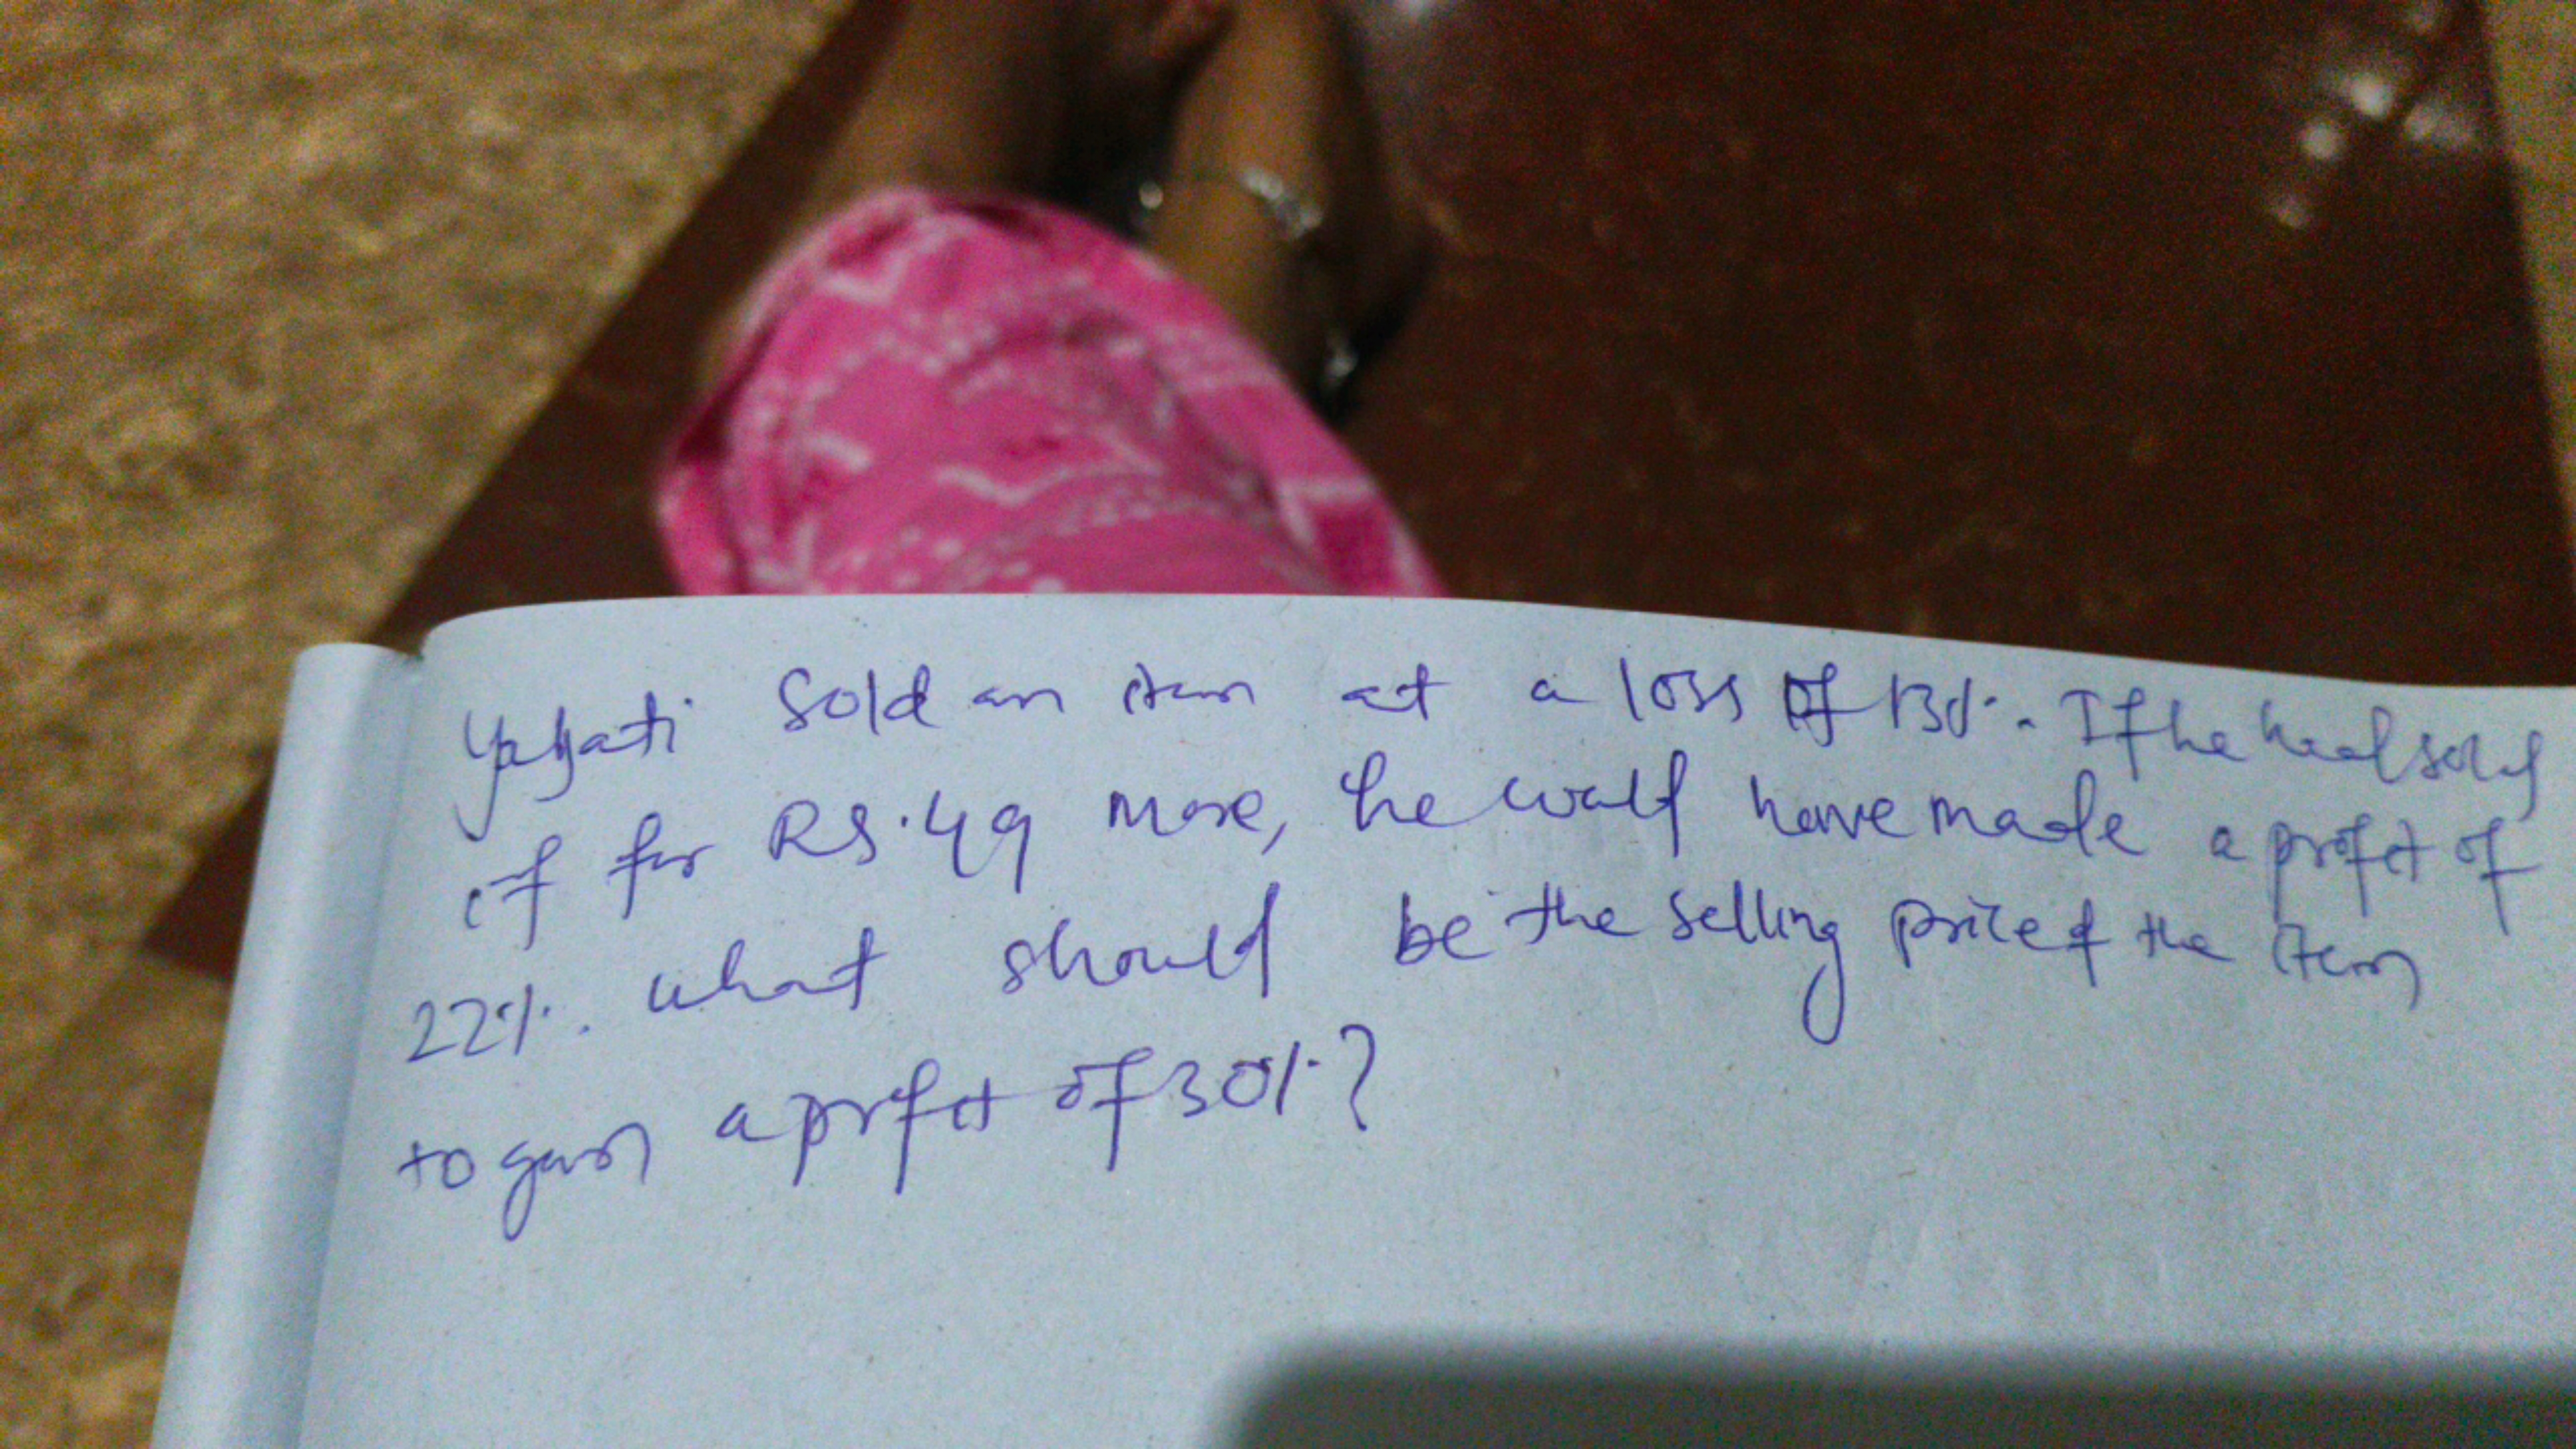 Yayati Sold an item at a loss of 13%. If he had sold
it for RS.49 more, he would have made a profit of
22%. what should be the selling price of the item
to gain a profit of 30%?